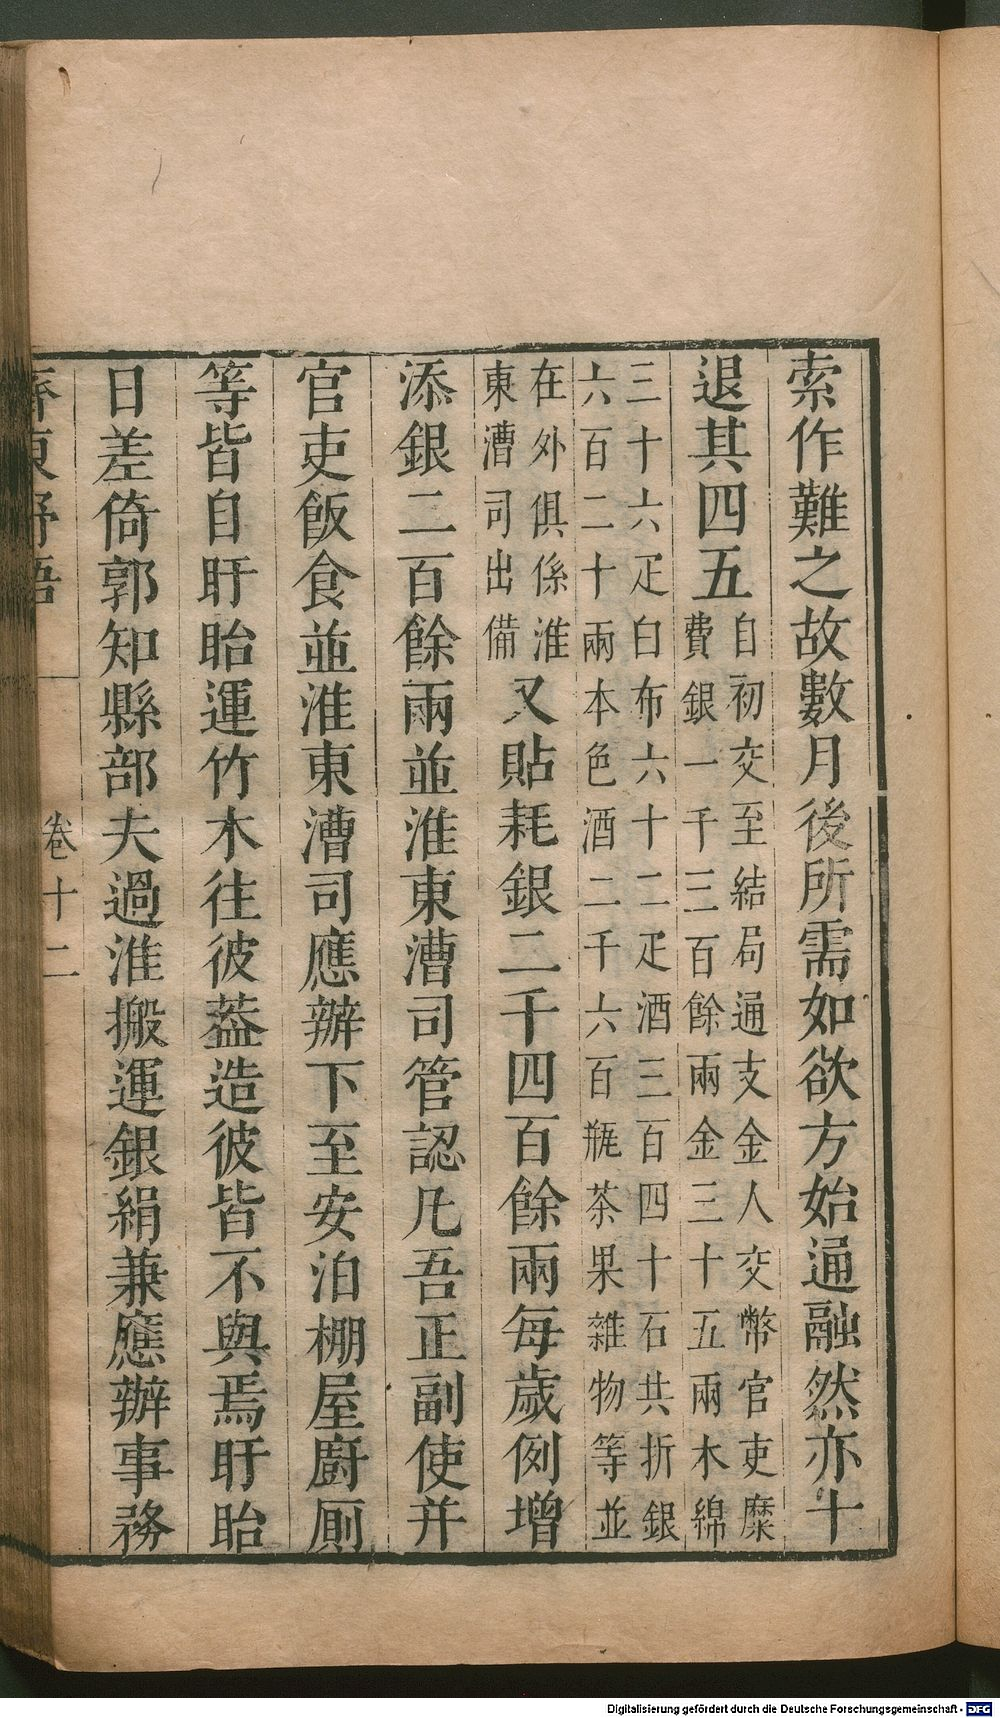 索作難之故數月後所需如欲方始通融然亦十
退其四五
自初交至結局通支金人交幣官吏糜
費銀一千三百餘兩金三十五兩木綿
三十六疋白布六十二疋酒三百四十石共折銀
六百二十兩本色酒二千六百瓶茶果雜物等並
在外俱係淮
東漕司出備
又貼耗銀二千四百餘兩每歲例增
添銀二百餘兩並淮東漕司管認凡吾正副使并
官吏飯食並淮東漕司應辦下至安泊棚屋廚厠
等皆自盱眙運竹木往彼葢造彼皆不與焉盱眙
日差倚郭知縣部夫過淮搬運銀絹兼應辦事務
齊東野語
卷十二
Digitalisierung gefördert durch die Deutsche Forschungsgemeinschaft - DFG